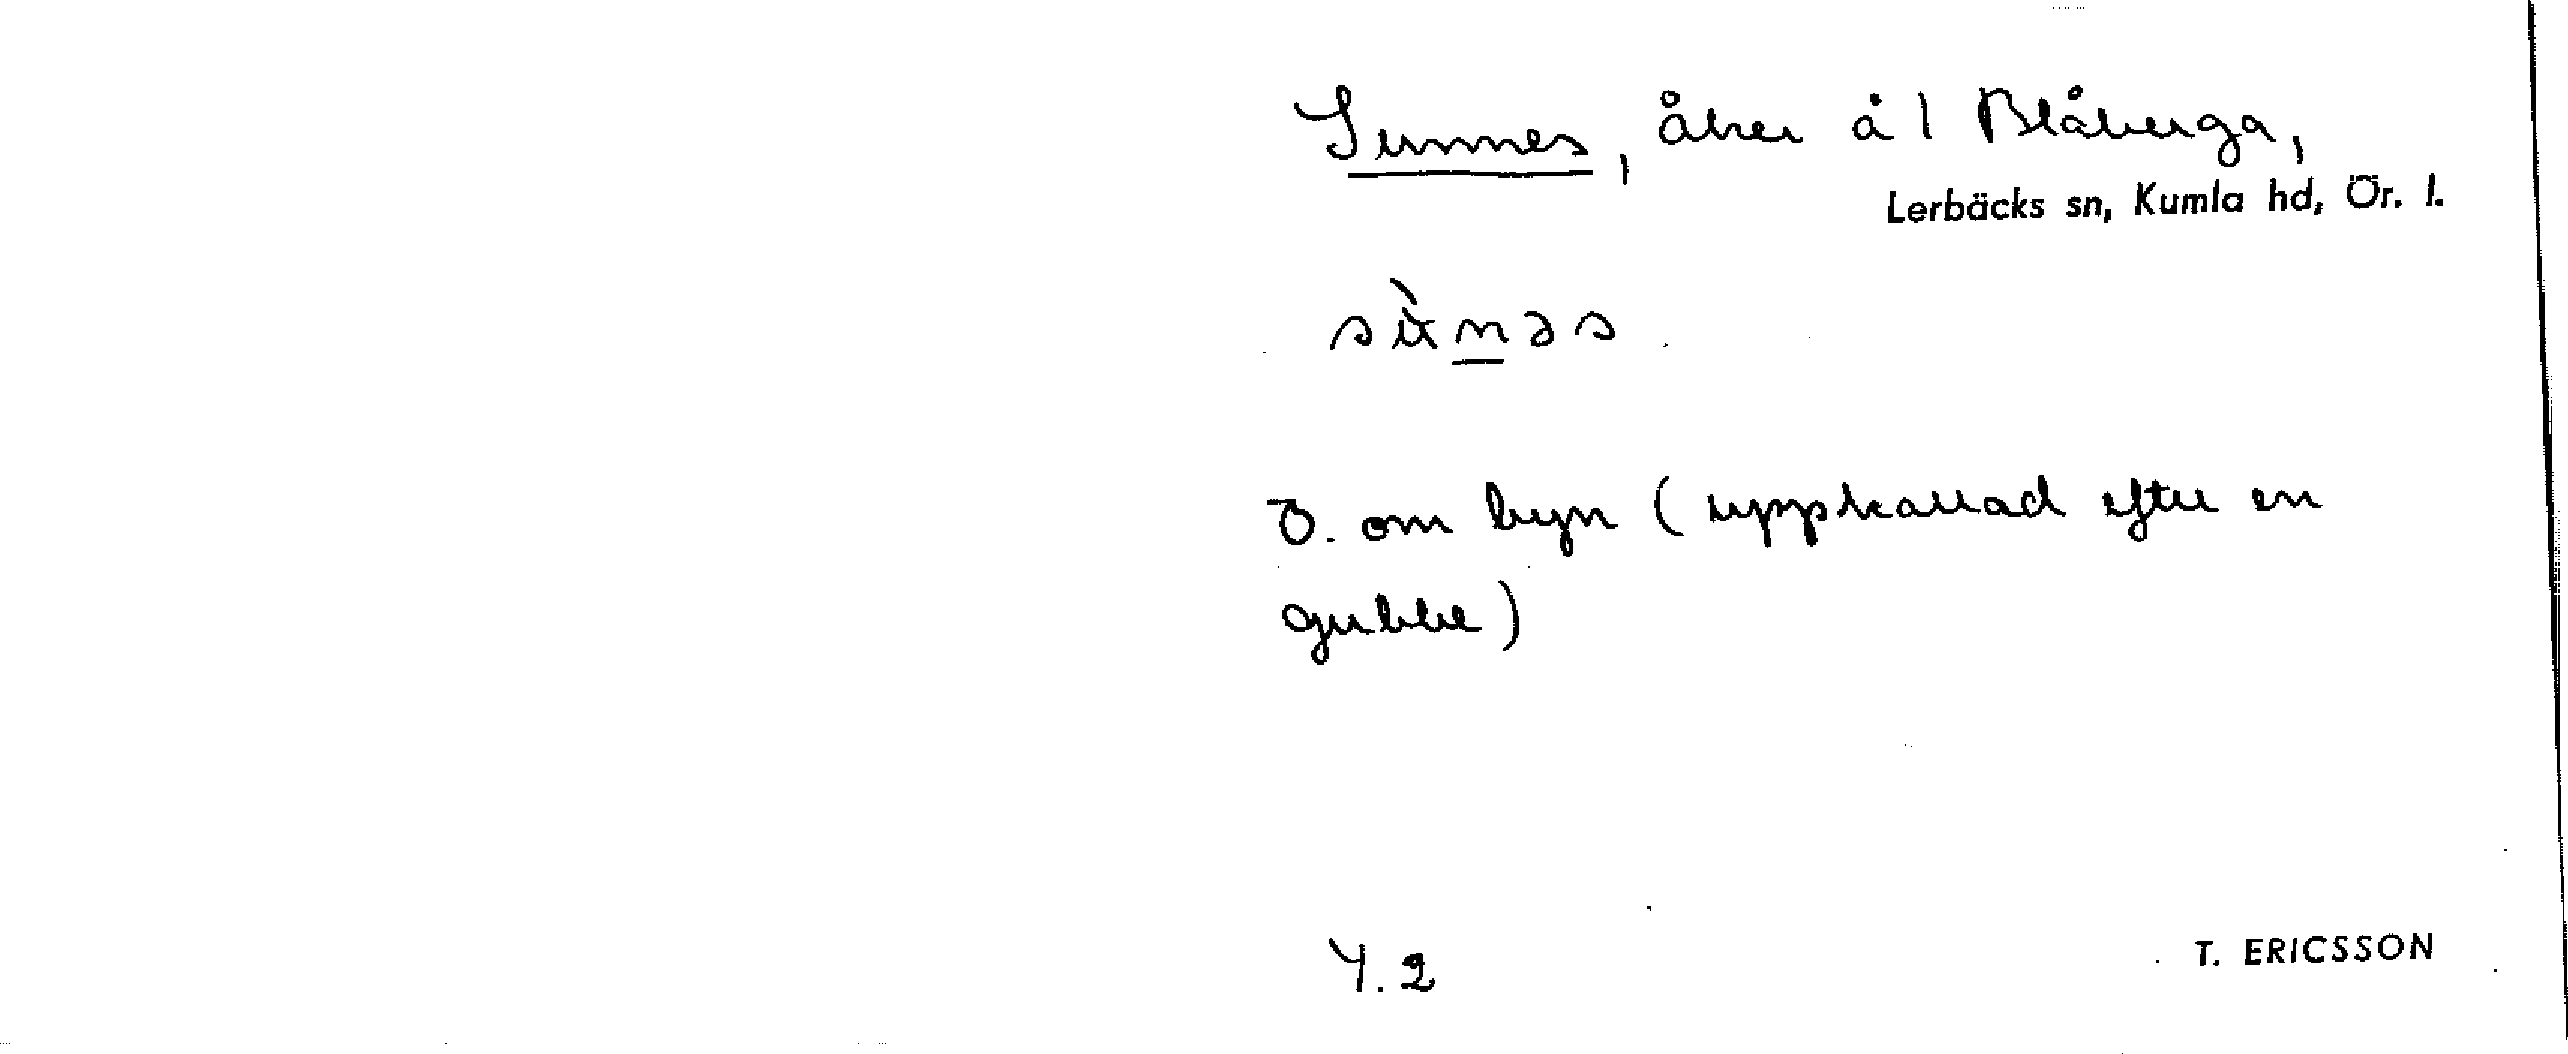 Sunnes, åker å 1 Blåberga,
Lerbäcks sn, Kumla hd, Ör. l.
Ö. om byn (uppkallad efter en
gubbe)
4.2
T. ERICSSON